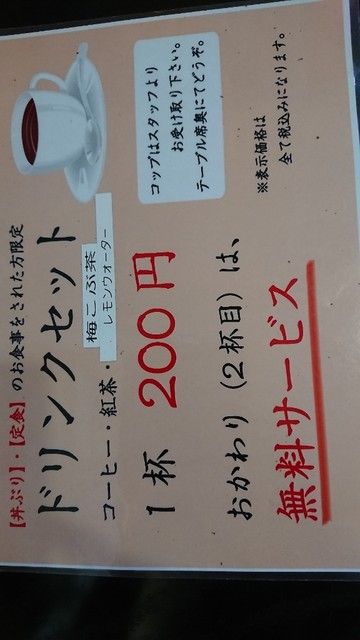 【丼ぶり】・【定食】のお食事をされた方限定
ドリンクセット
コーヒー・紅茶・梅こぶ茶
レモンウォーター
1杯 200円
コップはスタッフより
お受け取り下さい。
テーブル席奥にてどうぞ。
おかわり(2杯目)は、
無料サービス
※表示価格は
全て税込みになります。